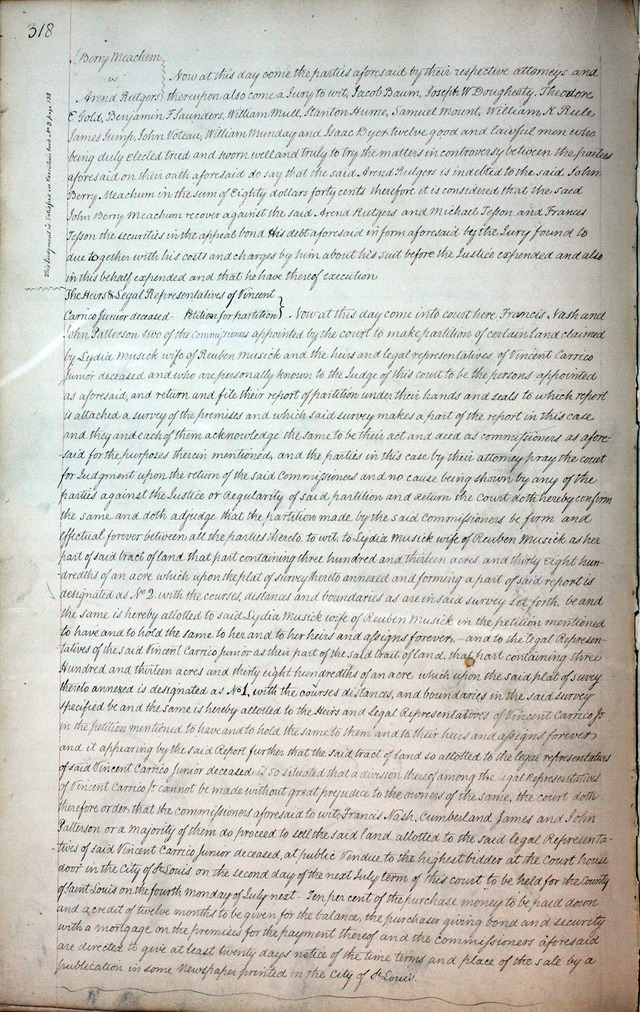 318
Berry Meachem
vs Now at this day come the parties aforesaid by their respective attorneys and
Arend Rutgers thereupon also come a Jury to wit, Jacob Baum, Joseph W. Dougherty, Theodore
E Gold, Benjamin F Saunders, William Mull, Stanton Hume, Samuel Mount, William K Rule
James Gump, John Voteau, William Munday and Isaac Dyer twelve good and lawful men who
being duly elected tried and sworn well and truly to try the matters in controversy between the parties
aforesaid on their oath aforesaid do say that the said Arend Rutgers is indebted to the said John
Berry Meachum in the sum of Eighty dollars forty cents therefore it is considered that the said
John Berry Meachum recover against the said Arend Rutgers and Michael Tesson and Frances
Tesson the securities in the appeal bond His debt aforesaid in form aforesaid by the Jury found to
due together with his costs and charges by him about his suit before the Justice expended and also
in this behalf expended and that he have thereof execution
This Judgment is Satisfied see Execution book No 3 page 128
The Heirs & Legal Representatives of Vincent
Carrico Junior deceased - Petition for partition } Now at this day come into court here Francis Nash and
John Patterson two of the commissioners appointed by the court to make partition of certain land claimed
by Lydia Musick wife of Reuben Musick and the heirs and legal representatives of Vincent Carrico
Junior deceased and who are personally known to the Judge of this court to be the persons appointed
as aforesaid, and return and file their report of partition under their hands and seals to which report
is attached a survey of the premises and which said survey makes a part of the report in this case
and they and each of them acknowledge the same to be their act and deed as commissioners as afore-
said for the purposes therein mentioned, and the parties in this case by their attorney pray the court
for Judgment upon the return of the said Commissioners and no cause being shown by any of the
parties against the Justice or Regularity of said partition and Return the Court doth hereby confirm
the same and doth adjudge that the partition made by the said Commissioners be firm and
effectual forever between all the parties thereto, to wit; to Lydia Musick wife of Reuben Musick as her
part of said tract of land that part containing three hundred and thirteen acres and thirty eight hun-
dredths of an acre which upon the plat of survey thereto annexed and forming a part of said report is
designated as No 2 with the courses, distances and boundaries as are in said survey set forth, be and
the same is hereby allotted to said Lydia Musick wife of Reuben Musick in the petition mentioned
to have and to hold the same to her and to her heirs and assigns forever, - and to the legal Represen-
tatives of the said Vincent Carrico Junior as their part of the said trait of land, that part containing three
Hundred and thirteen acres and thirty eight hundredths of an acre which upon the said plat of survey
thereto annexed is designated as No 1, with the courses distances, and boundaries in the said survey
specified be and the same is hereby allotted to the Heirs and Legal Representatives of Vincent Carrico Jr
in the petition mentioned to have and to hold the same to them and to their heirs and assigns forever
and it appearing by the said Report further that the said tract of land so allotted to the legal representatives
of said Vincent Carrico Junior deceased is so situated that a division thereof among the Legal Representatives
of Vincent Carrico Jr cannot be made without great prejudice to the owners of the same, the court doth
therefore order that the commissioners aforesaid to wit, Francis Nash, Cumberland James and John
Patterson or a majority of them do proceed to sell the said land allotted to the said legal Representa-
tives of said Vincent Carrico Junior deceased, at public Vendue to the highest bidder at the Court house
door in the City of St Louis on the second day of the next July term of this court to be held for the County
of Saint Louis on the fourth monday of July next - Ten per cent of the purchase money to be paid down
and a credit of twelve months to be given for the balance, the purchaser giving bond and security
with a mortgage on the premises for the payment thereof and the commissioners aforesaid
are directed to give at least twenty days notice of the time terms and place of the sale by a
publication in some Newspaper printed in the City of St Louis.